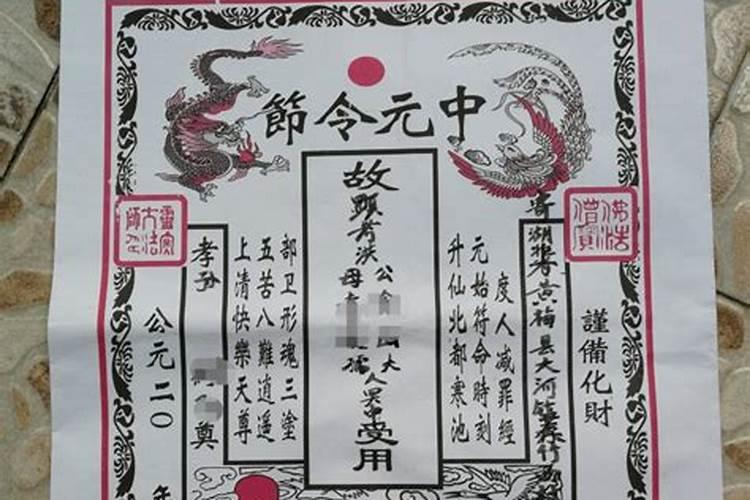 中元令節
佛法
僧寶
謹備化財
黄梅县大河镇
度人减罪經
元始符命時刻
升仙北都寒池
故顯考洪公大人
母孺
受用
部卫形魂三塗
五苦八難逍遥
上清快樂天尊
孝孙奠
靈寶
大法
師印
公元二〇年